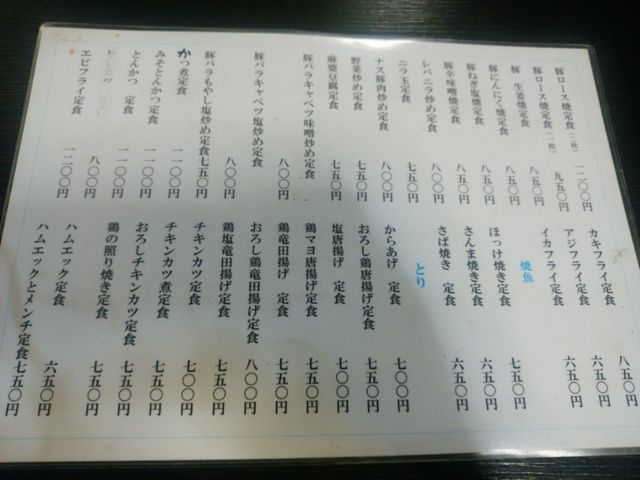 豚ロース焼定食(二枚) 一二〇〇円
豚ロース焼定食(一枚) 九五〇円
豚 生姜焼定食 八五〇円
豚にんにく焼定食 八五〇円
豚ねぎ塩焼定食 八五〇円
豚辛味噌焼定食 八五〇円
レバニラ炒め定食 八〇〇円
ニラ玉定食 七五〇円
ナス豚肉炒め定食 八〇〇円
野菜炒め定食 七五〇円
麻婆豆腐定食 七五〇円
豚バラキャベツ味噌炒め定食 八〇〇円
豚バラキャベツ塩炒め定食 八〇〇円
豚バラもやし塩炒め定食七五〇円
かつ煮定食 一一〇〇円
みそとんかつ定食 一一〇〇円
とんかつ 定食 一一〇〇円
八〇〇円
エビフライ定食 一二〇〇円
カキフライ定食 八五〇円
アジフライ定食 六五〇円
イカフライ定食 六五〇円
焼魚
ほっけ焼き定食 七五〇円
さんま焼き定食 六五〇円
さば焼き 定食 六五〇円
とり
からあげ 定食 七〇〇円
おろし鶏唐揚げ定食 七五〇円
塩唐揚げ 定食 七〇〇円
鶏マヨ唐揚げ定食 七五〇円
鶏竜田揚げ 定食 七五〇円
おろし鶏竜田揚げ定食 八〇〇円
鶏塩竜田揚げ定食 七五〇円
チキンカツ定食 七〇〇円
チキンカツ煮定食 七五〇円
おろしチキンカツ定食 七五〇円
鶏の照り焼き定食 七五〇円
ハムエック定食 六五〇円
ハムエックとメンチ定食 七五〇円